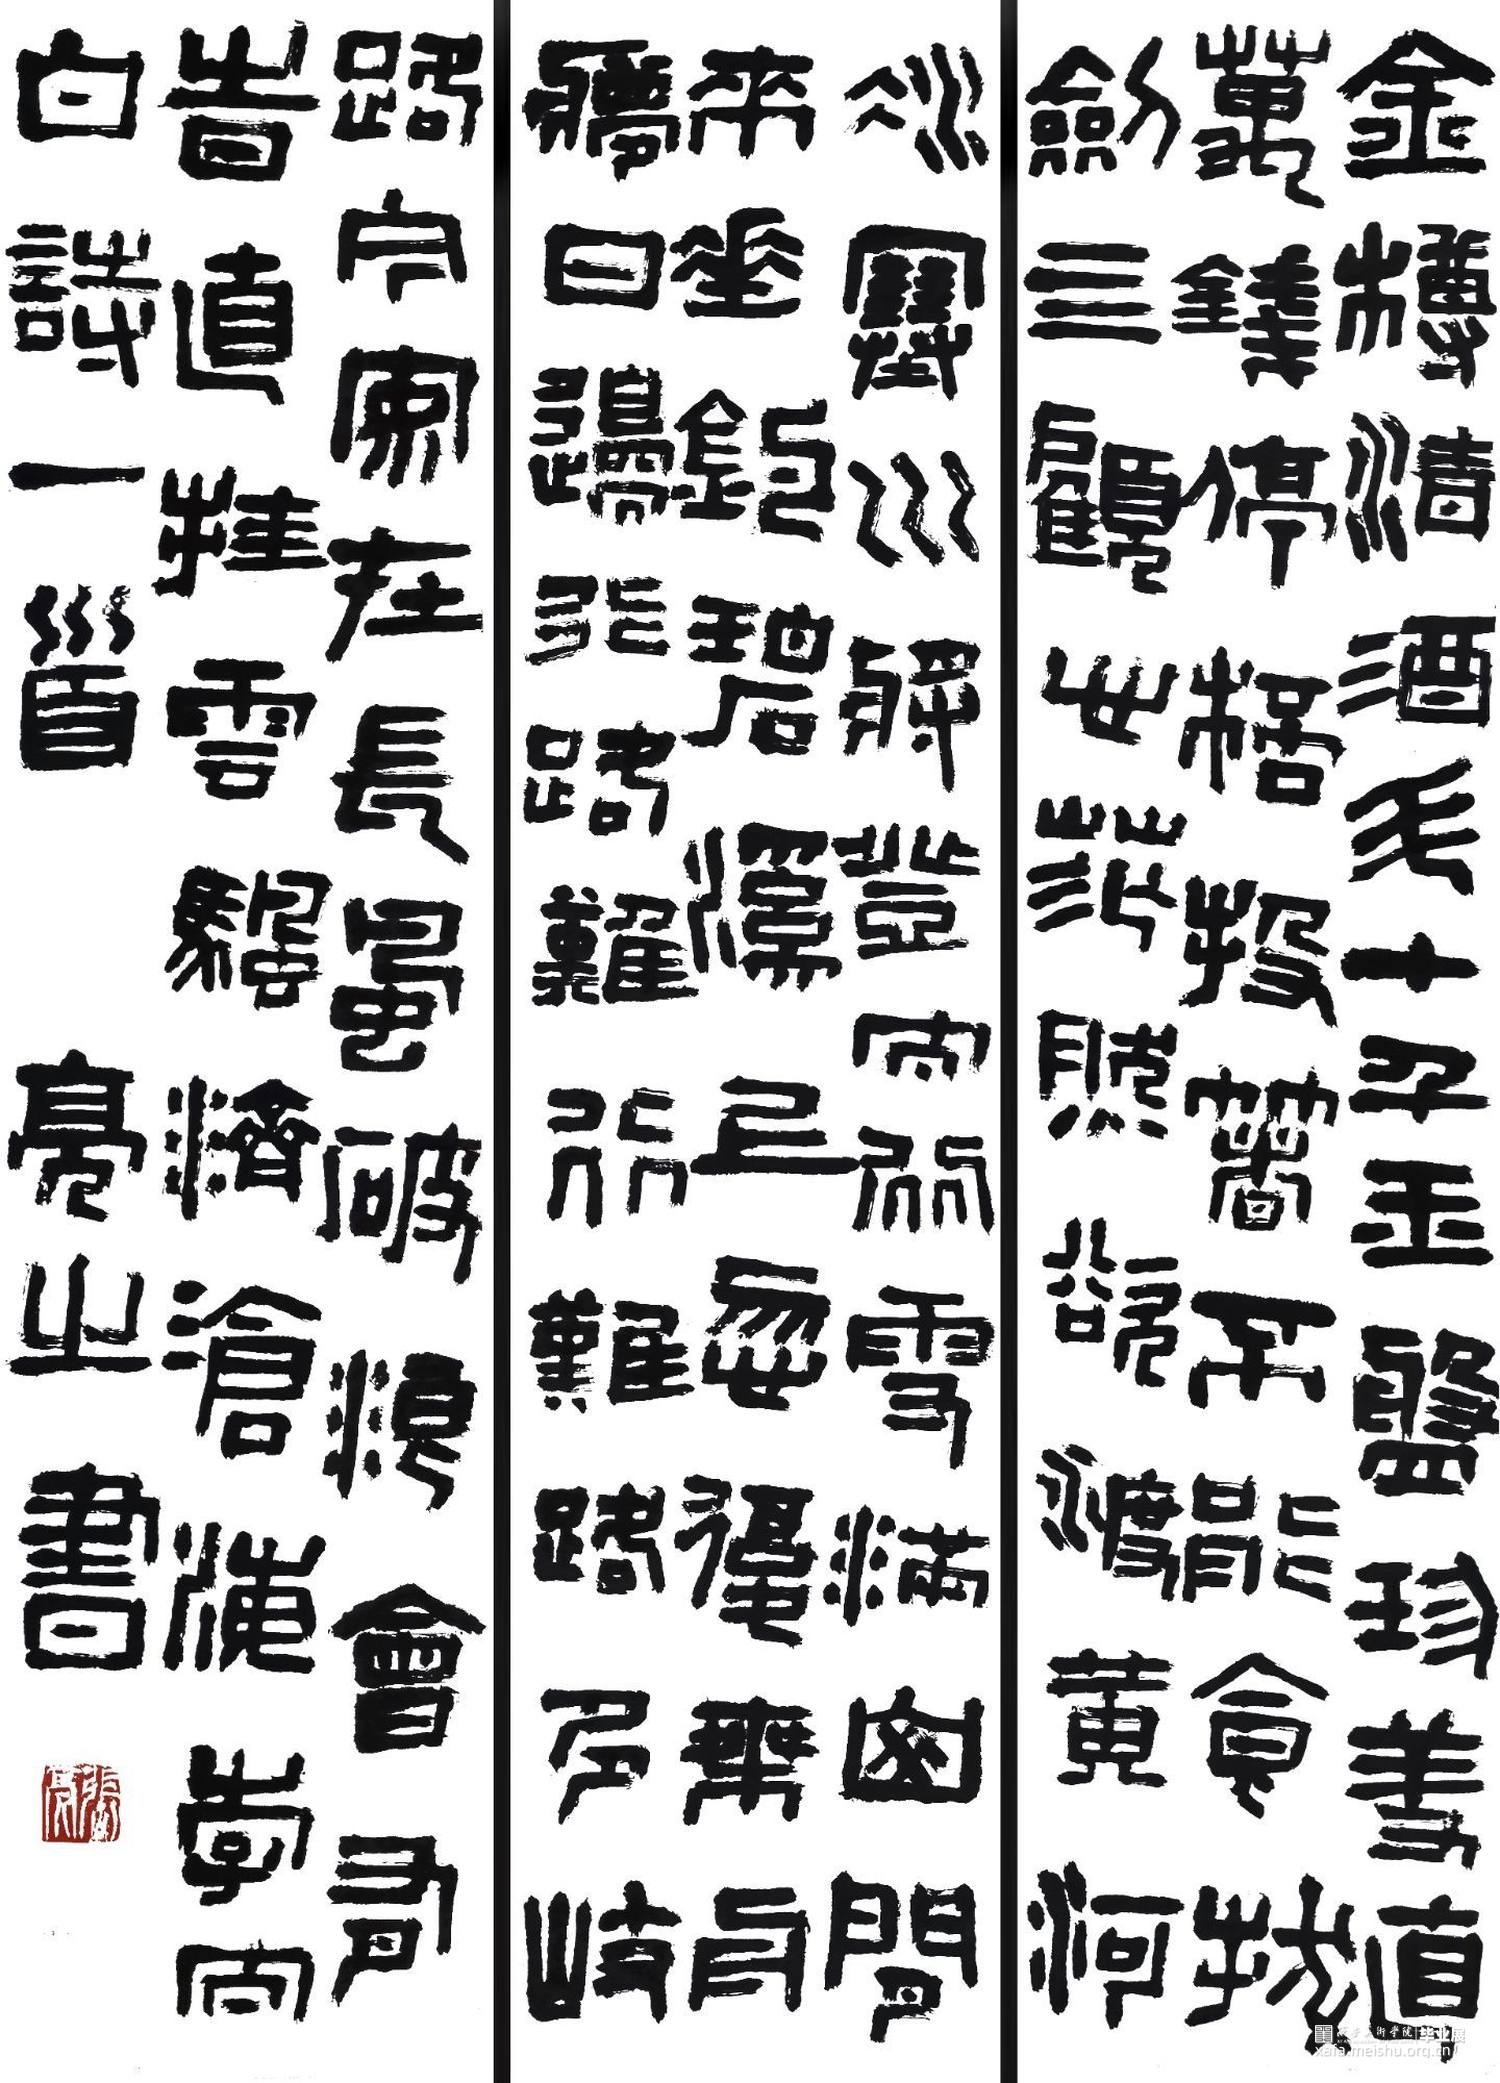 金樽清酒斗十千玉盤珍羞直
萬錢停桮投箸不能食拔
劍四顧心茫然欲渡黃河
冰塞川將登太行雪滿山閒
來垂釣碧溪上忽復乘舟
夢日邊行路難行難路多岐
路今安在長風破浪會有
時直挂雲颿濟滄海李太
白詩一首 亮之書
張亮
毕业展
xafa.meishu.org.cn/